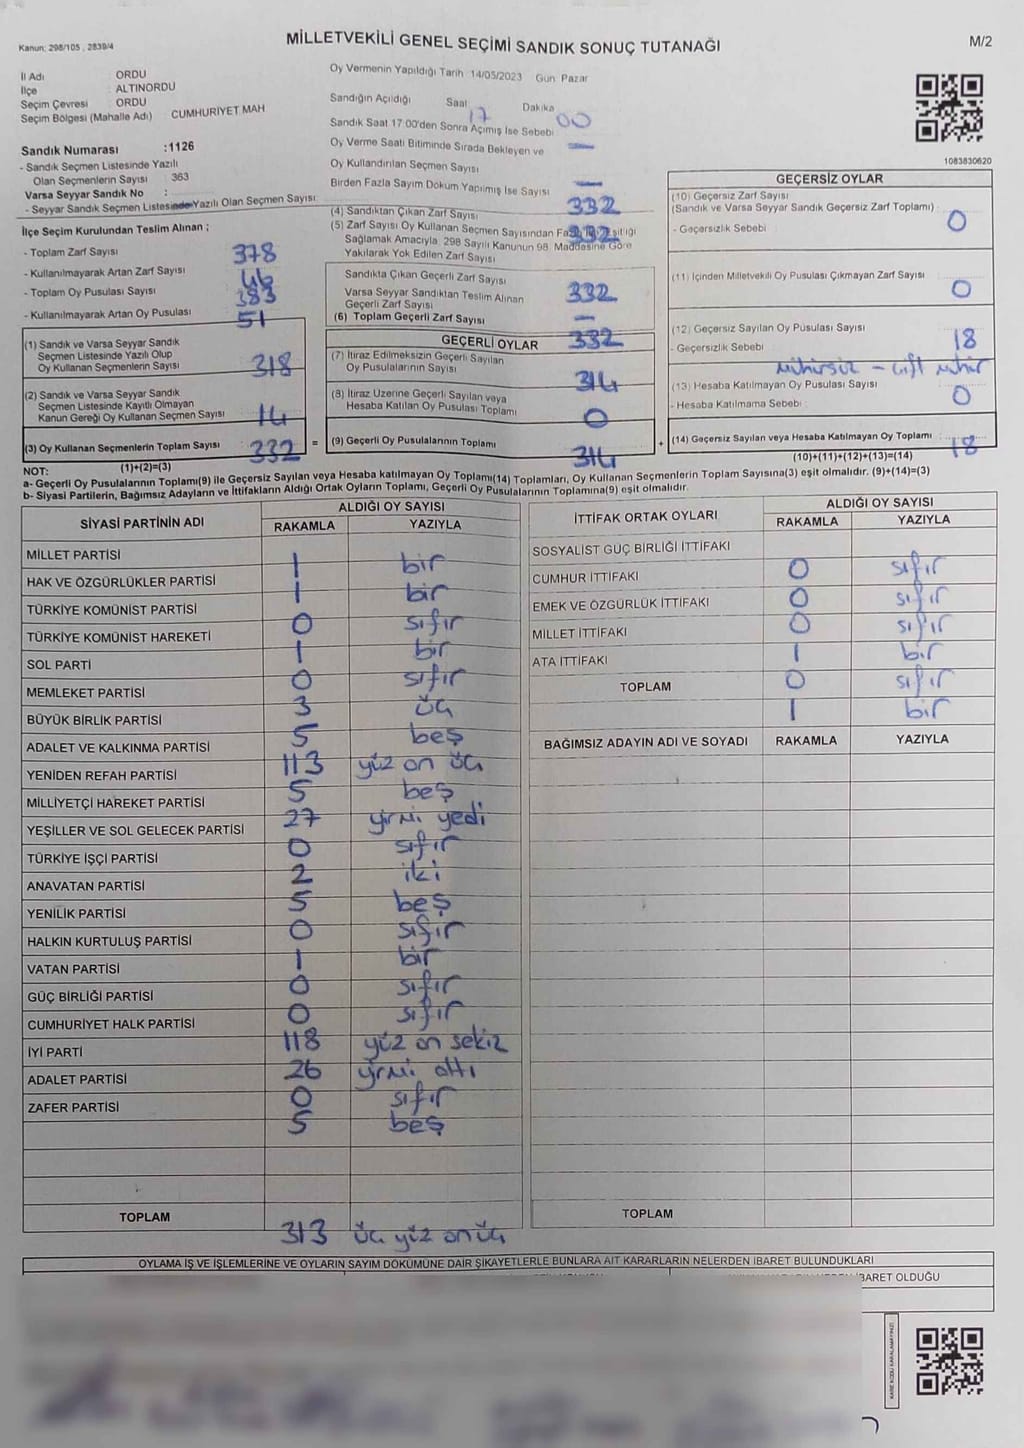 Kanun; 298/105 , 2839/4
MİLLETVEKİLİ GENEL SEÇİMİ SANDIK SONUÇ TUTANAĞI
M/2
İl Adı ORDU
İlçe ALTINORDU
Seçim Çevresi ORDU
Seçim Bölgesi (Mahalle Adı) CUMHURİYET MAH
Sandık Numarası :1126
- Sandık Seçmen Listesinde Yazılı
Olan Seçmenlerin Sayısı 363
Varsa Seyyar Sandık No :
- Seyyar Sandık Seçmen Listesinde Yazılı Olan Seçmen Sayısı:
İlçe Seçim Kurulundan Teslim Alınan ;
- Toplam Zarf Sayısı 378
- Kullanılmayarak Artan Zarf Sayısı 46
- Toplam Oy Pusulası Sayısı 383
- Kullanılmayarak Artan Oy Pusulası 51
(1) Sandık ve Varsa Seyyar Sandık
Seçmen Listesinde Yazılı Olup
Oy Kullanan Seçmenlerin Sayısı 318
(2) Sandık ve Varsa Seyyar Sandık
Seçmen Listesinde Kayıtlı Olmayan
Kanun Gereği Oy Kullanan Seçmen Sayısı 14
(3) Oy Kullanan Seçmenlerin Toplam Sayısı 332 =
(1)+(2)=(3)
Oy Vermenin Yapıldığı Tarih 14/05/2023 Gün: Pazar
Sandığın Açıldığı Saat 17 Dakika 00
Sandık Saat 17:00'den Sonra Açımış İse Sebebi
Oy Verme Saati Bitiminde Sırada Bekleyen ve —
Oy Kullandırılan Seçmen Sayısı
Birden Fazla Sayım Döküm Yapılmış İse Sayısı —
(4) Sandıktan Çıkan Zarf Sayısı 332
(5) Zarf Sayısı Oy Kullanan Seçmen Sayısından Fazla İse Eşitliği
Sağlamak Amacıyla, 298 Sayılı Kanunun 98. Maddesine Göre 332
Yakılarak Yok Edilen Zarf Sayısı
Sandıkta Çıkan Geçerli Zarf Sayısı
Varsa Seyyar Sandıktan Teslim Alınan 332
Geçerli Zarf Sayısı
(6) Toplam Geçerli Zarf Sayısı —
GEÇERLİ OYLAR 332
(7) İtiraz Edilmeksizin Geçerli Sayılan
Oy Pusulalarının Sayısı 314
(8) İtiraz Üzerine Geçerli Sayılan veya
Hesaba Katılan Oy Pusulası Toplamı 0
(9) Geçerli Oy Pusulalarının Toplamı 314 +
1083830620
GEÇERSİZ OYLAR
(10) Geçersiz Zarf Sayısı
(Sandık ve Varsa Seyyar Sandık Geçersiz Zarf Toplamı) : 0
- Geçersizlik Sebebi :
(11) İçinden Milletvekili Oy Pusulası Çıkmayan Zarf Sayısı : 0
(12) Geçersiz Sayılan Oy Pusulası Sayısı : 18
- Geçersizlik Sebebi : Mühürsüz - Çift mühür
(13) Hesaba Katılmayan Oy Pusulası Sayısı : 0
- Hesaba Katılmama Sebebi :
(14) Geçersiz Sayılan veya Hesaba Katılmayan Oy Toplamı : 18
(10)+(11)+(12)+(13)=(14)
NOT:
a- Geçerli Oy Pusulalarının Toplamı(9) ile Geçersiz Sayılan veya Hesaba katılmayan Oy Toplamı(14) Toplamları, Oy Kullanan Seçmenlerin Toplam Sayısına(3) eşit olmalıdır. (9)+(14)=(3)
b- Siyasi Partilerin, Bağımsız Adayların ve İttifakların Aldığı Ortak Oyların Toplamı, Geçerli Oy Pusulalarının Toplamına(9) eşit olmalıdır.
SİYASİ PARTİNİN ADI ALDIĞI OY SAYISI
RAKAMLA YAZIYLA
MİLLET PARTİSİ 1 bir
HAK VE ÖZGÜRLÜKLER PARTİSİ 1 bir
TÜRKİYE KOMÜNİST PARTİSİ 0 sıfır
TÜRKİYE KOMÜNİST HAREKETİ 1 bir
SOL PARTİ 0 sıfır
MEMLEKET PARTİSİ 3 üç
BÜYÜK BİRLİK PARTİSİ 5 beş
ADALET VE KALKINMA PARTİSİ 113 yüz on üç
YENİDEN REFAH PARTİSİ 5 beş
MİLLİYETÇİ HAREKET PARTİSİ 27 yirmi yedi
YEŞİLLER VE SOL GELECEK PARTİSİ 0 sıfır
TÜRKİYE İŞÇİ PARTİSİ 2 iki
ANAVATAN PARTİSİ 5 beş
YENİLİK PARTİSİ 0 sıfır
HALKIN KURTULUŞ PARTİSİ 1 bir
VATAN PARTİSİ 0 sıfır
GÜÇ BİRLİĞİ PARTİSİ 0 sıfır
CUMHURİYET HALK PARTİSİ 118 yüz on sekiz
İYİ PARTİ 26 yirmi altı
ADALET PARTİSİ 0 sıfır
ZAFER PARTİSİ 5 beş
TOPLAM 313 üç yüz on üç
İTTİFAK ORTAK OYLARI ALDIĞI OY SAYISI
RAKAMLA YAZIYLA
SOSYALİST GÜÇ BİRLİĞİ İTTİFAKI 0 sıfır
CUMHUR İTTİFAKI 0 sıfır
EMEK VE ÖZGÜRLÜK İTTİFAKI 0 sıfır
MİLLET İTTİFAKI 1 bir
ATA İTTİFAKI 0 sıfır
TOPLAM 1 bir
BAĞIMSIZ ADAYIN ADI VE SOYADI RAKAMLA YAZIYLA
TOPLAM
OYLAMA İŞ VE İŞLEMLERİNE VE OYLARIN SAYIM DÖKÜMÜNE DAİR ŞİKAYETLERLE BUNLARA AİT KARARLARIN NELERDEN İBARET BULUNDUKLARI
İBARET OLDUĞU
KARE KODU KARALAMAYINIZ!